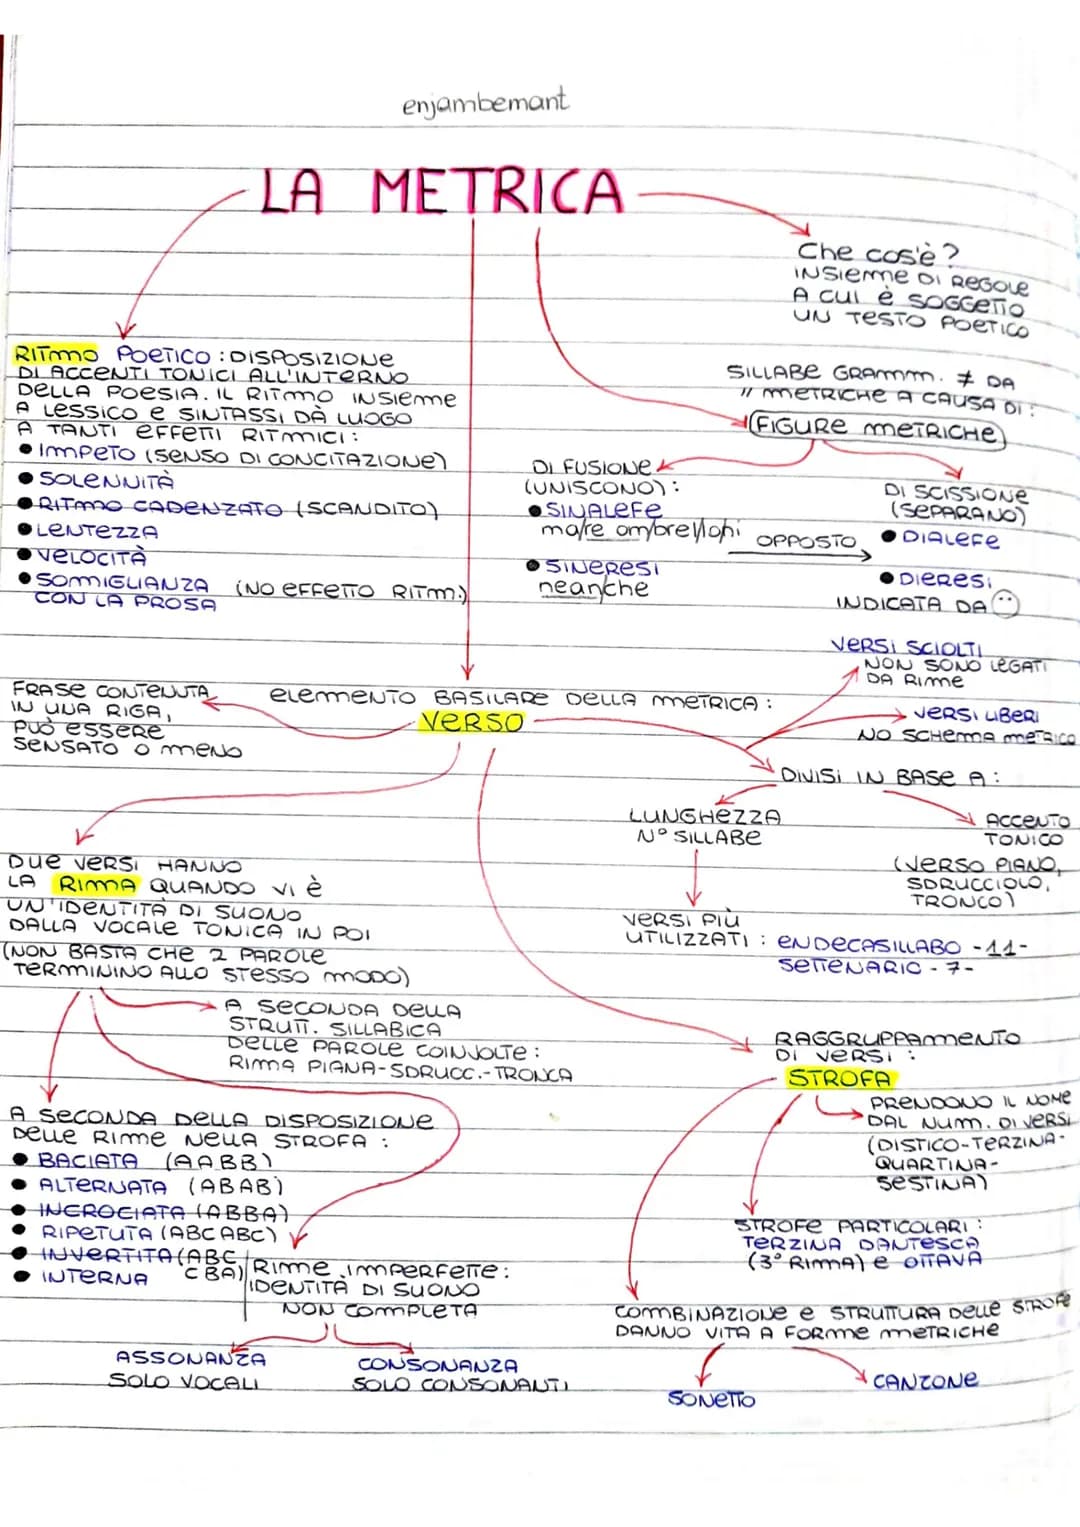 enjambemant
LA METRICA
Che cos'è?
INSIEME DI REGOLE
A CUI è SOGGETTO
UN TESTO POETICO
RITMO POETICO : DISPOSIZIONE
DI ACCENTI TONICI ALL'INTERNO
DELLA POESIA. IL RITMO INSIEME
A LESSICO e SINTASSI DÀ LUOGO
A TANTI EFFETTI RITMICI :
• IMPETO (SENSO DI CONCITAZIONE)
• SOLENNITÀ
• RITMO CADENZATO (SCANDITO)
• LENTEZZA
• VELOCITÀ
• SOMIGLIANZA (NO EFFETTO RITM.)
CON LA PROSA
SILLABE GRAMM. ≠ DA
" METRICHE A CAUSA DI :
FIGURE METRICHE
DI FUSIONE
(UNISCONO) :
• SINALEFE
mare ombrelloni
• SINERESI
neanche
OPPOSTO
DI SCISSIONE
(SEPARANO)
• DIALEFE
• DIERESI
INDICATA DA ¨
ELEMENTO BASILARE DELLA METRICA :
VERSO
FRASE CONTENUTA
IN UNA RIGA,
PUÒ ESSERE
SENSATO O MENO
VERSI SCIOLTI
NON SONO LEGATI
DA RIME
VERSI LIBERI
NO SCHEMA METRICO
DIVISI IN BASE A :
LUNGHEZZA
N° SILLABE
ACCENTO
TONICO
(VERSO PIANO,
SDRUCCIOLO,
TRONCO)
VERSI PIÙ
UTILIZZATI : ENDECASILLABO -11-
SETTENARIO - 7-
DUE VERSI HANNO
LA RIMA QUANDO VI è
UN'IDENTITÀ DI SUONO
DALLA VOCALE TONICA IN POI
(NON BASTA CHE 2 PAROLE
TERMININO ALLO STESSO MODO)
A SECONDA DELLA
STRUTT. SILLABICA
DELLE PAROLE COINVOLTE :
RIMA PIANA-SDRUCC.-TRONCA
A SECONDA DELLA DISPOSIZIONE
DELLE RIME NELLA STROFA :
• BACIATA (AABB)
• ALTERNATA (ABAB)
• INCROCIATA (ABBA)
• RIPETUTA (ABC ABC)
• INVERTITA (ABC
CBA)
• INTERNA
RIME IMPERFETTE :
IDENTITÀ DI SUONO
NON COMPLETA
ASSONANZA
SOLO VOCALI
CONSONANZA
SOLO CONSONANTI
RAGGRUPPAMENTO
DI VERSI :
STROFA
PRENDONO IL NOME
DAL NUM. DI VERSI
(DISTICO-TERZINA-
QUARTINA-
SESTINA)
STROFE PARTICOLARI :
TERZINA DANTESCA
(3° RIMA) e OTTAVA
COMBINAZIONE e STRUTTURA DELLE STROFE
DANNO VITA A FORME METRICHE
SONETTO
CANZONE